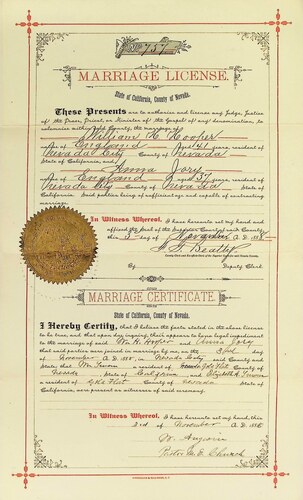 No 757
MARRIAGE LICENSE.
State of California, County of Nevada.
These Presents are to authorize and license any Judge, Justice
of the Peace, Priest, or Minister of the Gospel of any denomination, to
solemnize within said County, the marriage of
William H. Hooper
of England Aged 41 years, resident of
Nevada City County of Nevada
State of California, and
Emma Jory
of England Aged 37 years, resident of
Nevada City County of Nevada State of
California. Said parties being of sufficient age and capable of contracting
marriage.
In Witness Whereof, I have hereunto set my hand and
affixed the seal of the Superior Court of said County,
this 3 day of November A.D. 188
Beatty
County Clerk and Ex-officio Clerk of the Superior Court in and for said County.
By Deputy Clerk.
MARRIAGE CERTIFICATE.
State of California, County of Nevada.
I Hereby Certify, that I believe the facts stated in the above license
to be true, and that upon due inquiry there appears to be no legal impediment
to the marriage of said Wm H. Hooper and Emma Jory
that said parties were joined in marriage by me, on the 3rd day
of November A.D. 188 in Nevada City said County and
State; that Wm a resident of
Nevada State of California and Elizabeth
a resident of Gold Flat County of Nevada State of
California, were present as witnesses of said ceremony.
In Witness Whereof, I have hereunto set my hand, this
3rd of November A.D. 188
W. Angwin
Pastor M. E. Church